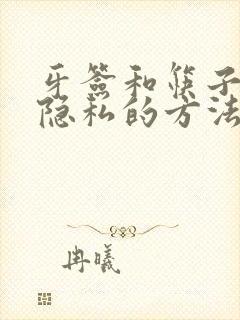 牙签和筷子
隐私的方法
冉曦